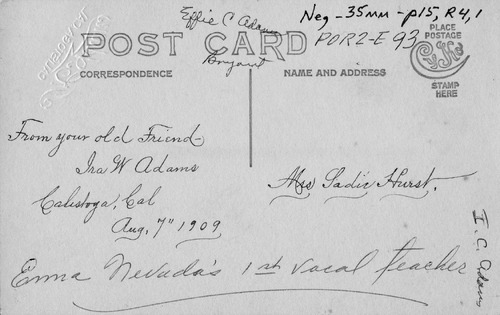 Effie C Adams
Bryant
Neg - 35mm - p15, R4, 1
PORZ-E 93
POST CARD
CORRESPONDENCE
NAME AND ADDRESS
PLACE
POSTAGE
STAMP
HERE
From your old Friend
Ira W Adams
Calistoga, Cal
Aug, 7" 1909
Mrs Sadie Hurst.
I. C. Adams
Emma Nevada's 1st vocal teacher